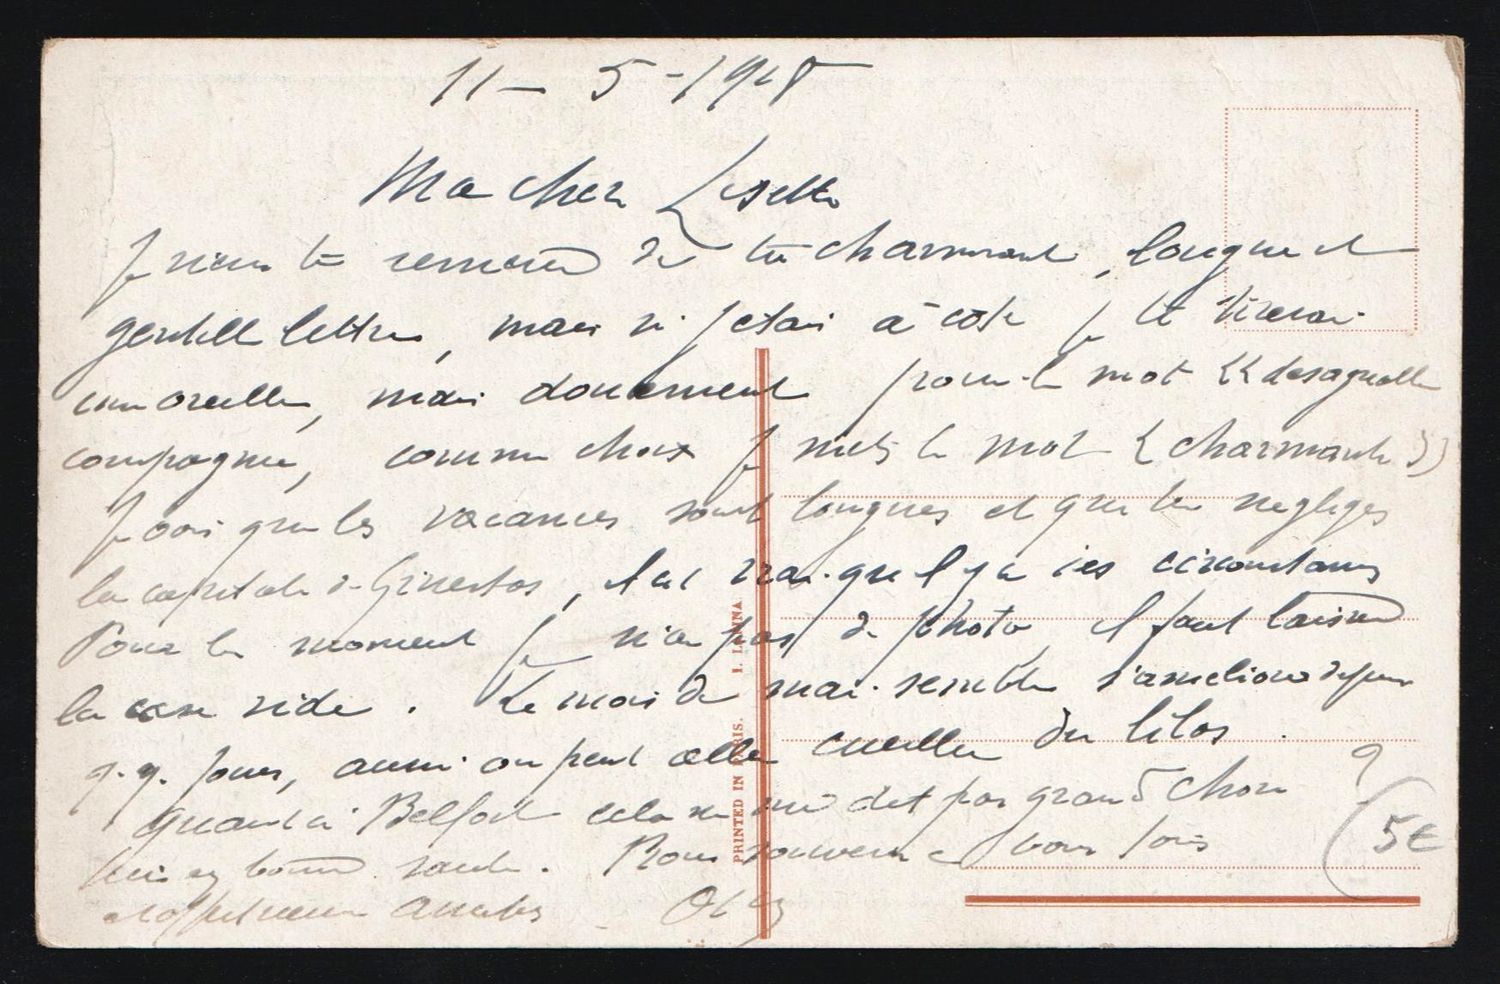 11 - 5 - 1918
Ma cher Lisette
Je viens te remercier de ta charmante, longue et
gentille lettre, mais si j'etais à coté je te tirerai
une oreille, mais doucement pour le mot << desagreable
compagnie, comme choix je mets le mot << charmante >>
Je vois que les vacances sont longues et que tu negliges
la capitale de Ginestas, il est vrai que il y a les circonstances
Pour le moment je n'ai pas de photo, il faut laisser
la case vide. Le mois de mai semble s'ameliorer depuis
q.q. jours, aussi on peut aller cueiller du lilas.
Quant à Belfort cela ne me dit pas grand chose
suis en bonne santé. Bons souvenir à vous tous
et affectueux
PRINTED IN PARIS. I. LAPINA
5€